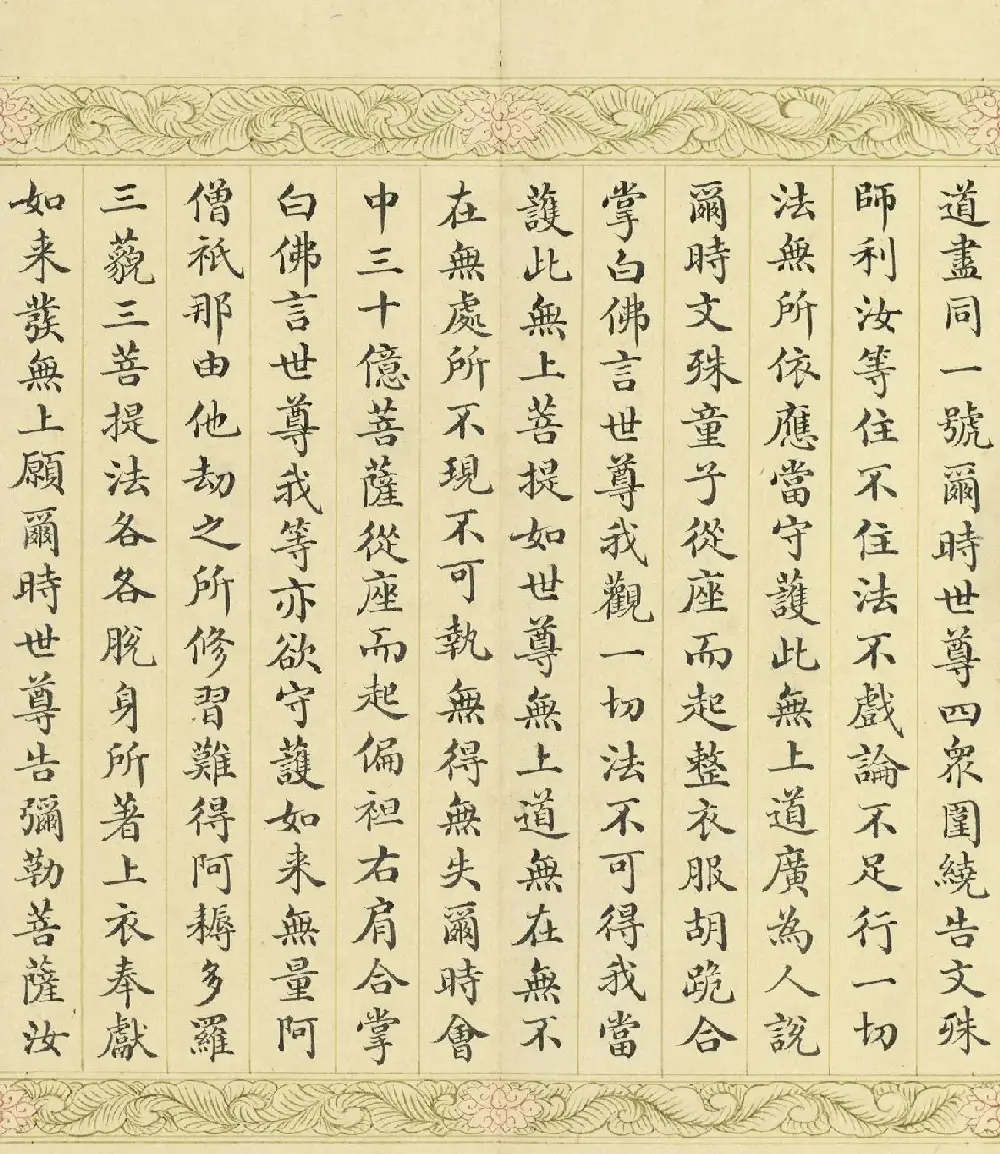 道盡同一號爾時世尊四衆圍繞告文殊
師利汝等住不住法不戲論不足行一切
法無所依應當守護此無上道廣為人說
爾時文殊童子從座而起整衣服胡跪合
掌白佛言世尊我觀一切法不可得我當
護此無上菩提如世尊無上道無在無不
在無處所不現不可執無得無失爾時會
中三十億菩薩從座而起偏袒右肩合掌
白佛言世尊我等亦欲守護如来無量阿
僧祇那由他劫之所修習難得阿耨多羅
三藐三菩提法各各脫身所著上衣奉獻
如来發無上願爾時世尊告彌勒菩薩汝